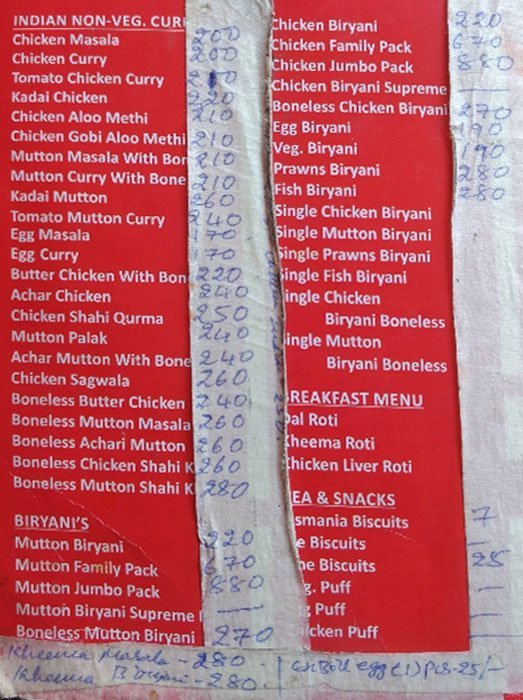 INDIAN NON-VEG. CUR
Chicken Masala 200
Chicken Curry 200
Tomato Chicken Curry
Kadai Chicken 220
Chicken Aloo Methi 210
Chicken Gobi Aloo Methi 210
Mutton Masala With Bon 210
Mutton Curry With Bone 210
Kadai Mutton 260
Tomato Mutton Curry 240
Egg Masala 170
Egg Curry 170
Butter Chicken With Bon 220
Achar Chicken 240
Chicken Shahi Qurma 250
Mutton Palak 240
Achar Mutton With Bone 240
Chicken Sagwala 260
Boneless Butter Chicken 240
Boneless Mutton Masala 260
Boneless Achari Mutton 260
Boneless Chicken Shahi K 260
Boneless Mutton Shahi K 280
BIRYANI'S
Mutton Biryani 220
Mutton Family Pack 670
Mutton Jumbo Pack 880
Mutton Biryani Supreme —
Boneless Mutton Biryani 270
Kheema Masala - 280
Kheema Biryani - 280
Chicken Biryani 220
Chicken Family Pack 670
Chicken Jumbo Pack 880
Chicken Biryani Supreme —
Boneless Chicken Biryani 270
Egg Biryani 190
Veg. Biryani 190
Prawns Biryani 280
Fish Biryani 280
Single Chicken Biryani
Single Mutton Biryani
Single Prawns Biryani
Single Fish Biryani
ingle Chicken
Biryani Boneless
ingle Mutton
Biryani Boneless
REAKFAST MENU
Dal Roti
Kheema Roti
Chicken Liver Roti
EA & SNACKS
smania Biscuits 7
e Biscuits —
ne Biscuits 25
g. Puff —
Puff —
hicken Puff —
Boil egg (1) Pcs-25/-